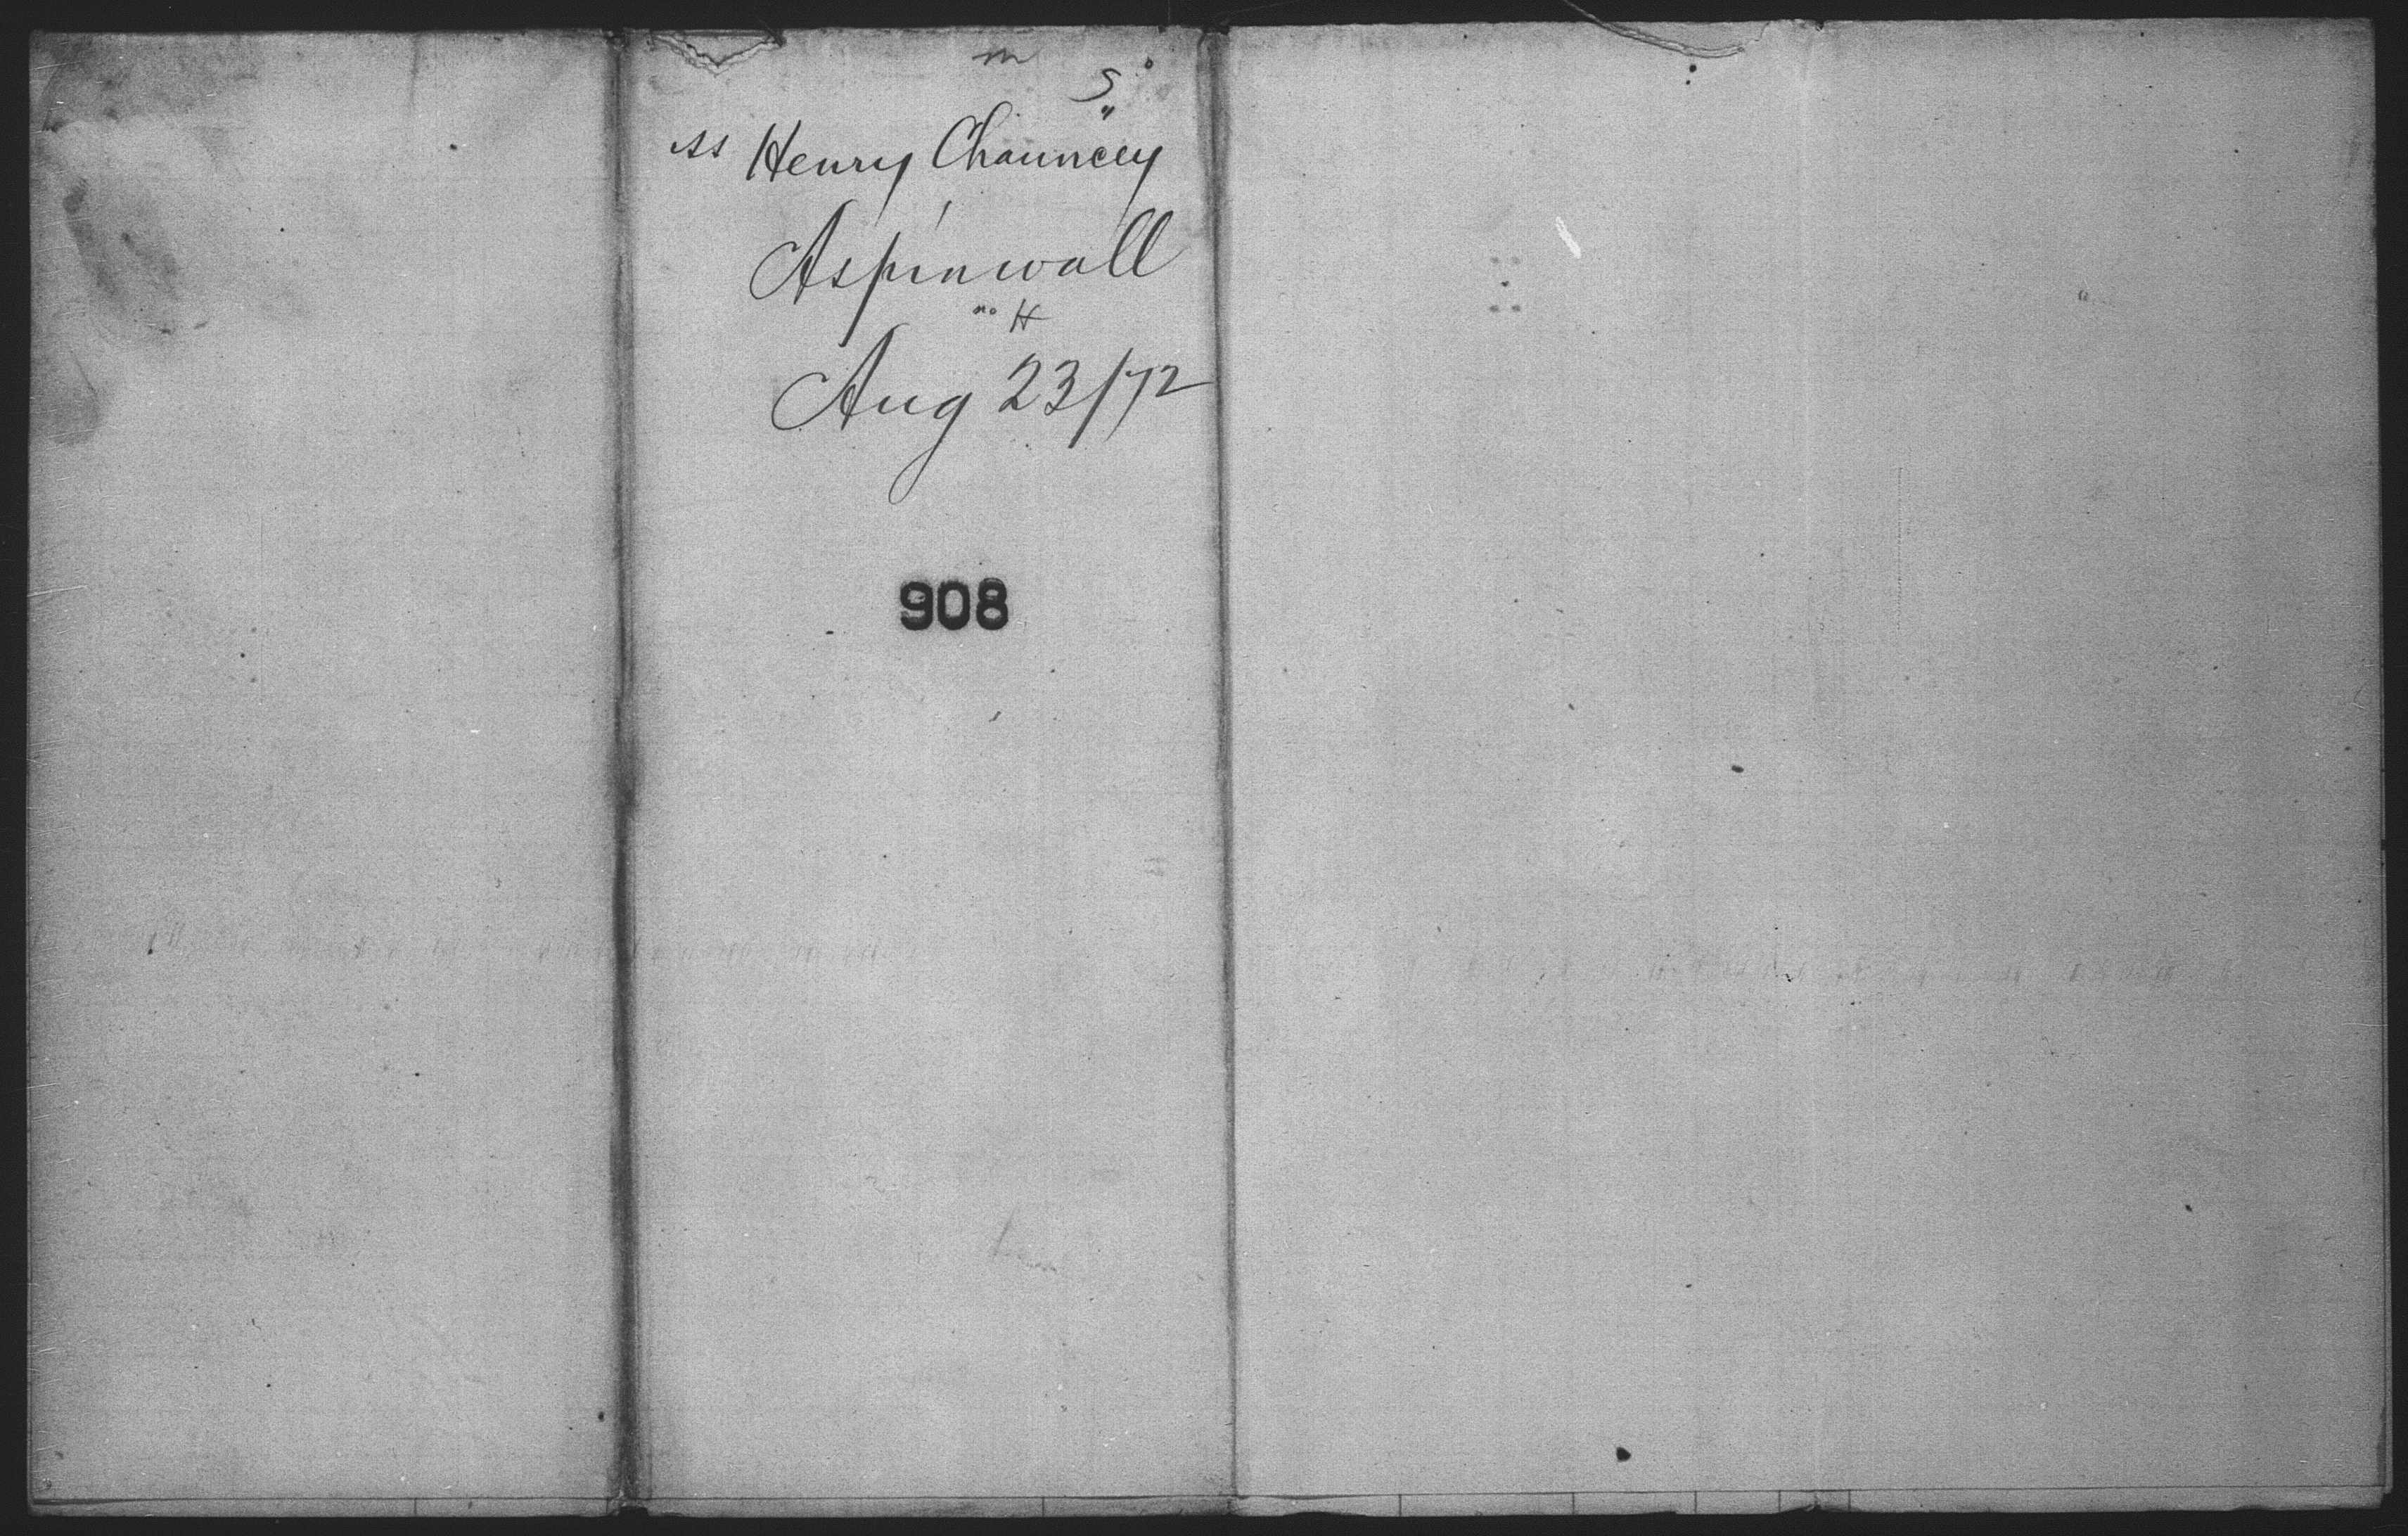 m
5
ss Henry Chauncey
Aspinwall
H
Aug 23/72
908